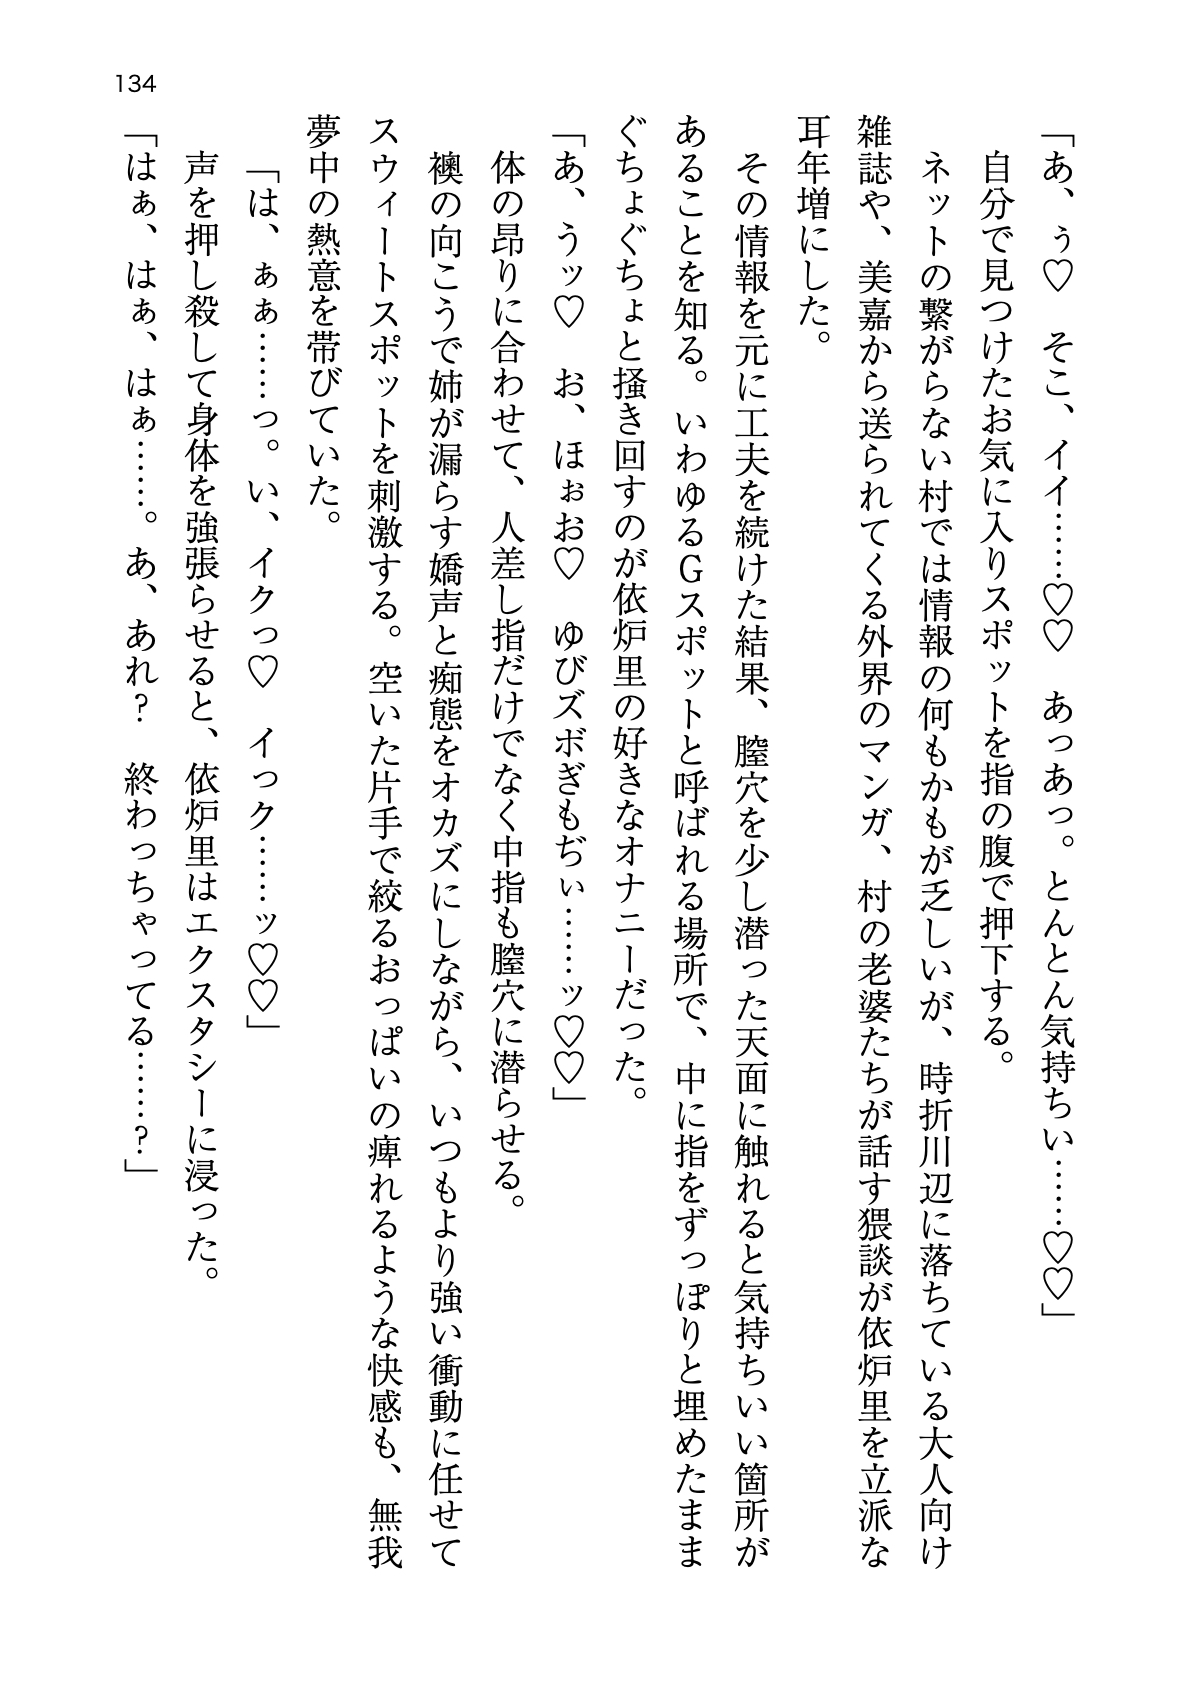 134
「あ、ぅ♡　そこ、イイ……♡♡　あっあっ。とんとん気持ちい……♡♡」
自分で見つけたお気に入りスポットを指の腹で押下する。
ネットの繋がらない村では情報の何もかもが乏しいが、時折川辺に落ちている大人向け
雑誌や、美嘉から送られてくる外界のマンガ、村の老婆たちが話す猥談が依炉里を立派な
耳年増にした。
その情報を元に工夫を続けた結果、膣穴を少し潜った天面に触れると気持ちいい箇所が
あることを知る。いわゆるＧスポットと呼ばれる場所で、中に指をずっぽりと埋めたまま
ぐちょぐちょと掻き回すのが依炉里の好きなオナニーだった。
「あ、うッ♡　お、ほぉお♡　ゆびズボぎもぢぃ……ッ♡♡」
体の昂りに合わせて、人差し指だけでなく中指も膣穴に潜らせる。
襖の向こうで姉が漏らす嬌声と痴態をオカズにしながら、いつもより強い衝動に任せて
スウィートスポットを刺激する。空いた片手で絞るおっぱいの痺れるような快感も、無我
夢中の熱意を帯びていた。
「は、ぁぁ……っ。い、イクっ♡　イっク……ッ♡♡」
声を押し殺して身体を強張らせると、依炉里はエクスタシーに浸った。
「はぁ、はぁ、はぁ……。あ、あれ？　終わっちゃってる……？」